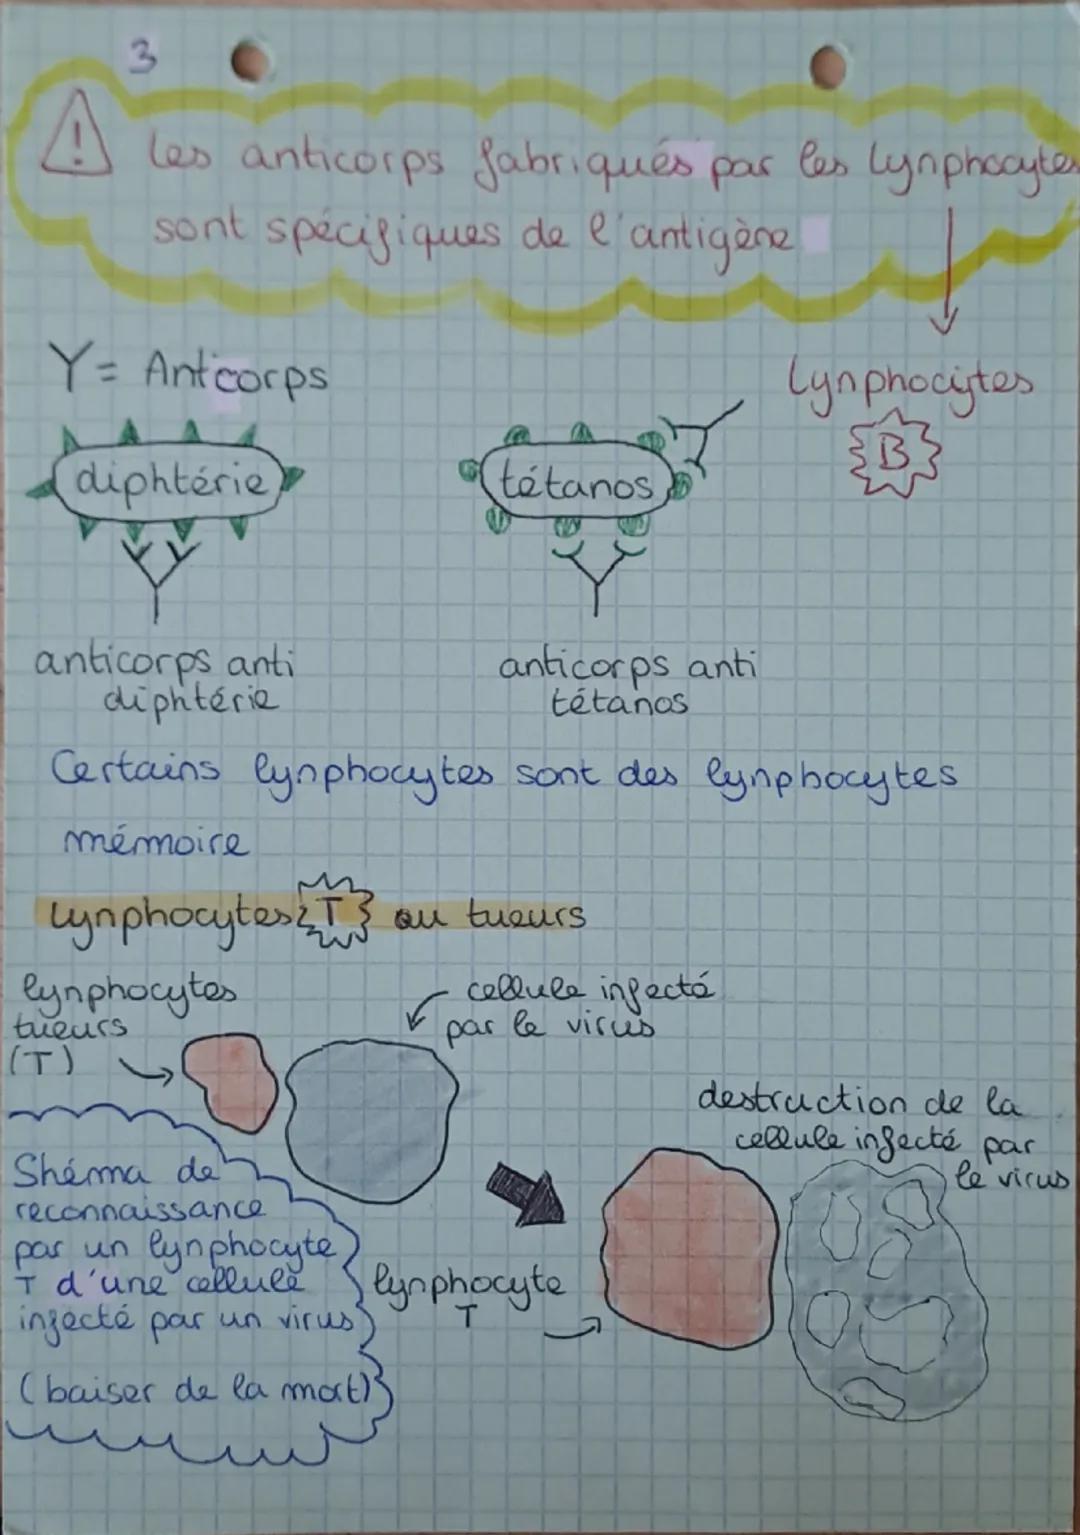 3
Les anticorps fabriqués par les lynphocytes
sont spécifiques de l'antigène
Y = Anticorps
Lynphocytes
B
diphtérie
tétanos
anticorps anti
diphtérie
anticorps anti
tétanos
Certains lynphocytes sont des lynphocytes
mémoire
Lynphocytes T ou tueurs
lynphocytes
tueurs
(T)
cellule infecté
par le virus
destruction de la
cellule infecté par
le virus
Shéma de
reconnaissance
par un lynphocyte
T d'une cellule
infecté par un virus
(baiser de la mort)
lynphocyte
T